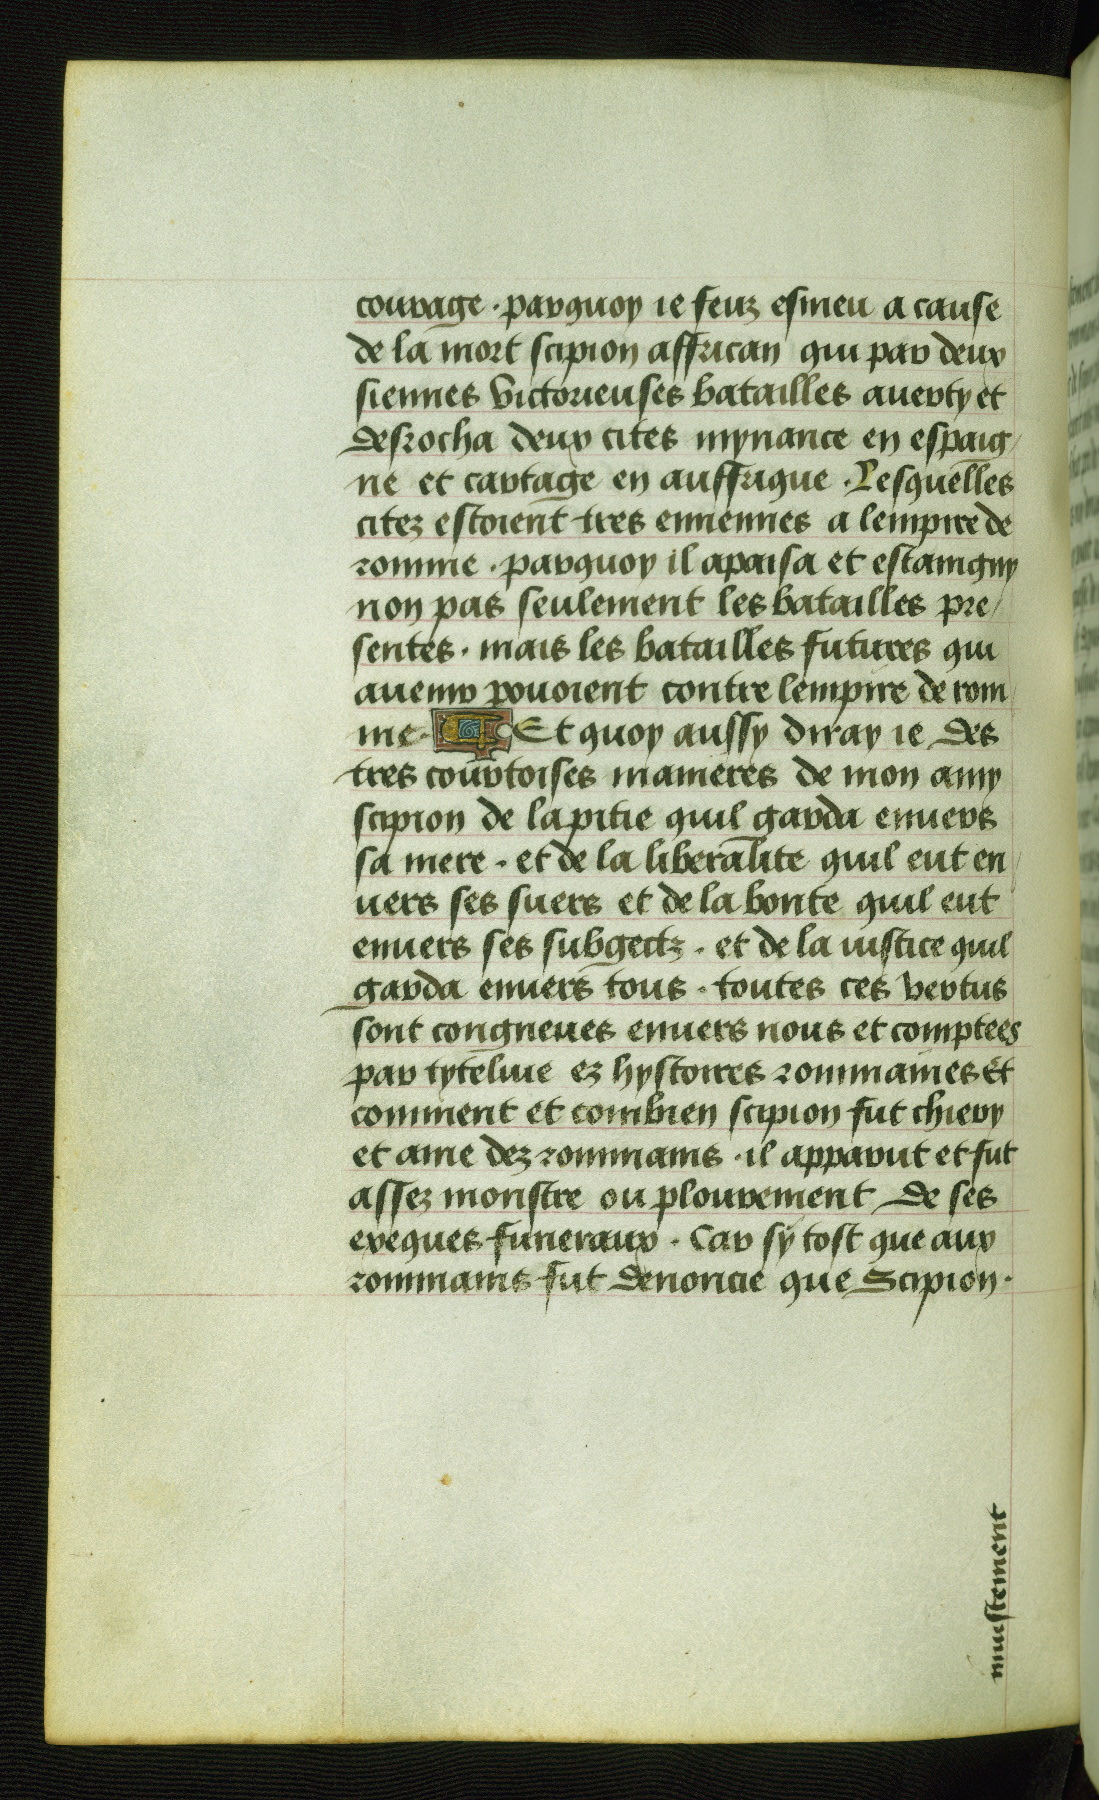 courage · parquoy ie feuz esmeu a cause
de la mort scipion affrican qui par deux
siennes victorieuses batailles auerty et
desrocha deux cites mynance en espaig/
ne et cartage en auffrique · Lesquelles
citez estoient tres ennemies a lempire de
romme · parquoy il apaisa et estaingny
non pas seulement les batailles pre/
sentes · mais les batailles futures qui
auenir pouoient contre lempire de rom
me · Et quoy aussy diray ie des
tres courtoises manieres de mon amy
scipion de la pitie quil garda enuers
sa mere · et de la liberalite quil eut en
uers ses suers et de la bonte quil eut
enuers ses subgectz · et de la iustice quil
garda enuers tous · toutes ces vertus
sont congneues enuers nous et comptees
par tyteliuie ez hystoires rommaines Et
comment et combien scipion fut chiery
et ame dez rommains · il apparut et fut
assez monstre ou plourement de ses
exeques funeraux · Car sy tost que aux
rommains fut denoncie que Scipion ·
iniustement